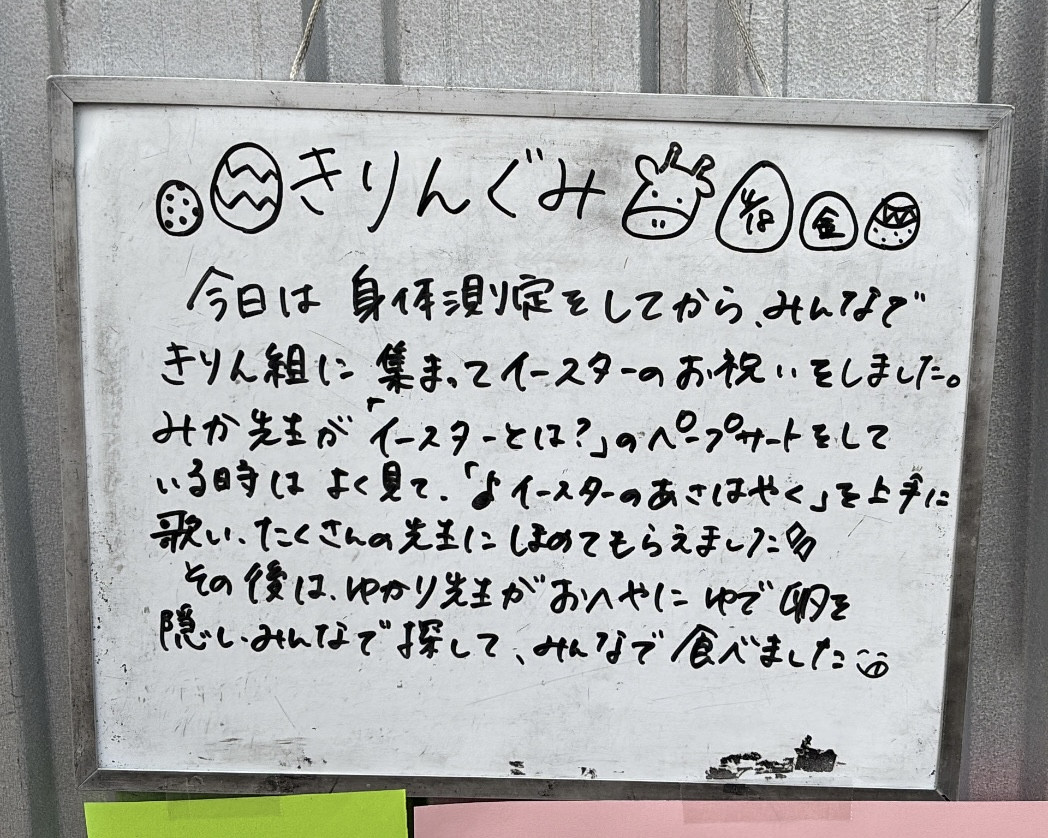 きりんぐみ 4/18 金
今日は 身体測定をしてから、みんなで
きりん組に 集まってイースターのお祝いをしました。
みか先生が「イースターとは?」のペープサートをして
いる時は よく見て、「♪イースターのあさはやく」を上手に
歌い、たくさんの先生にほめてもらえました♪
その後は、ゆかり先生がおへやに ゆで卵を
隠し、みんなで探して、みんなで 食べました☺